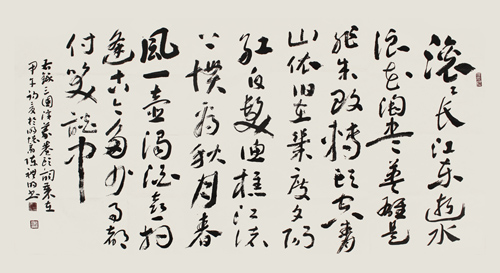 滚滚长江东逝水
浪花淘尽英雄是
非成败转头空青
山依旧在几度夕阳
红白发渔樵江渚
上惯看秋月春
风一壶浊酒喜相
逢古今多少事都
付笑谈中
右录三国演义卷头词
甲午初夏于